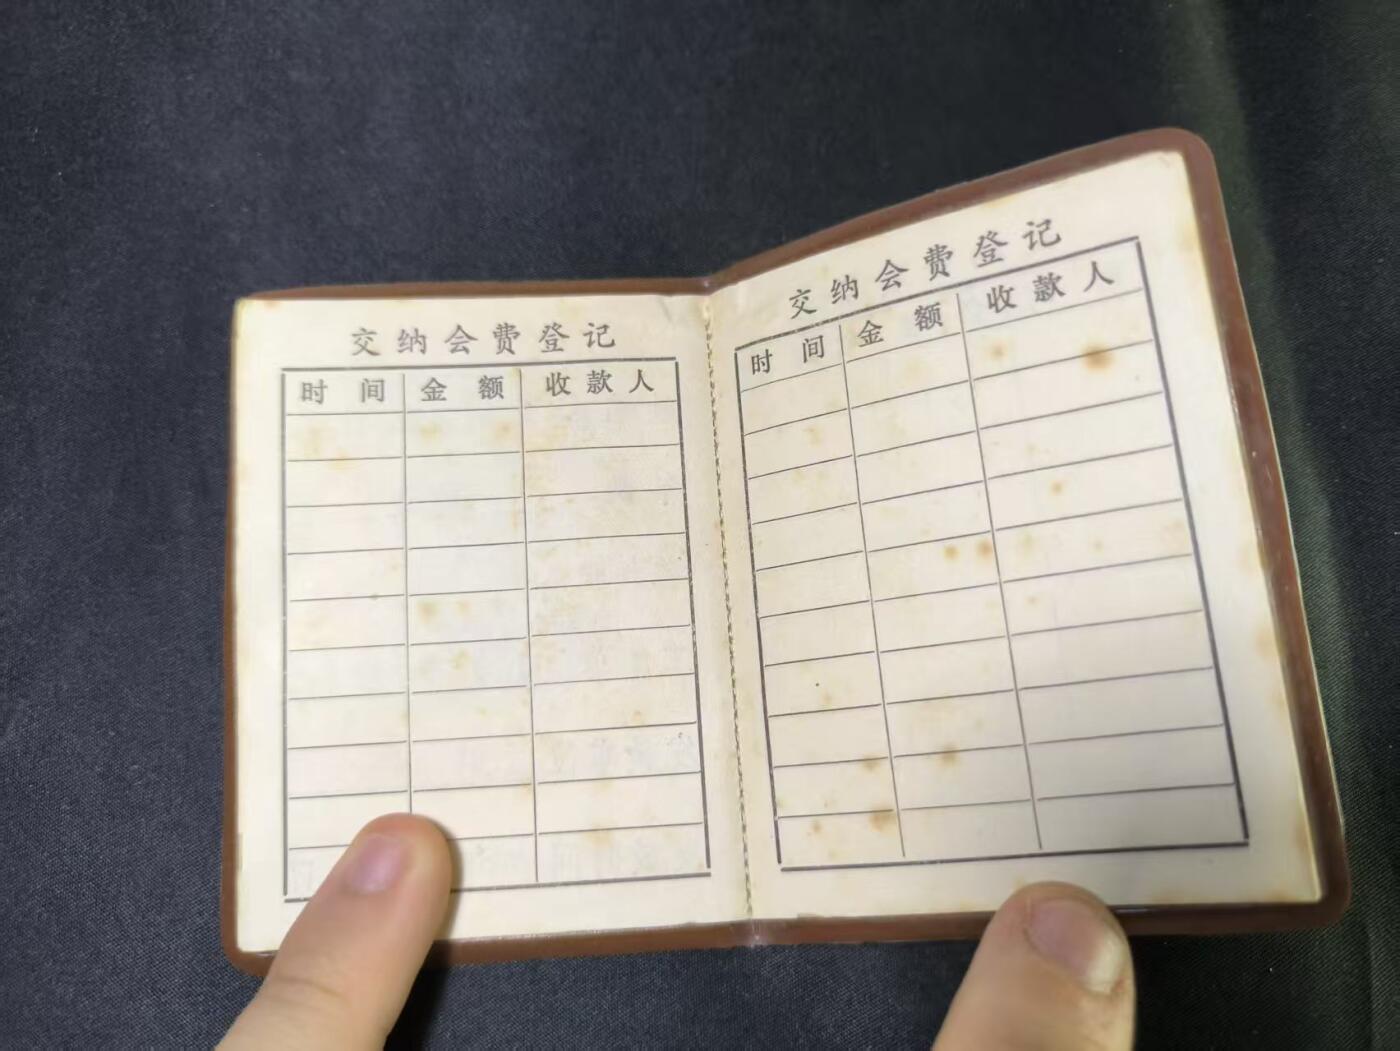 交纳会费登记
时间 金额 收款人
交纳会费登记
时间 金额 收款人